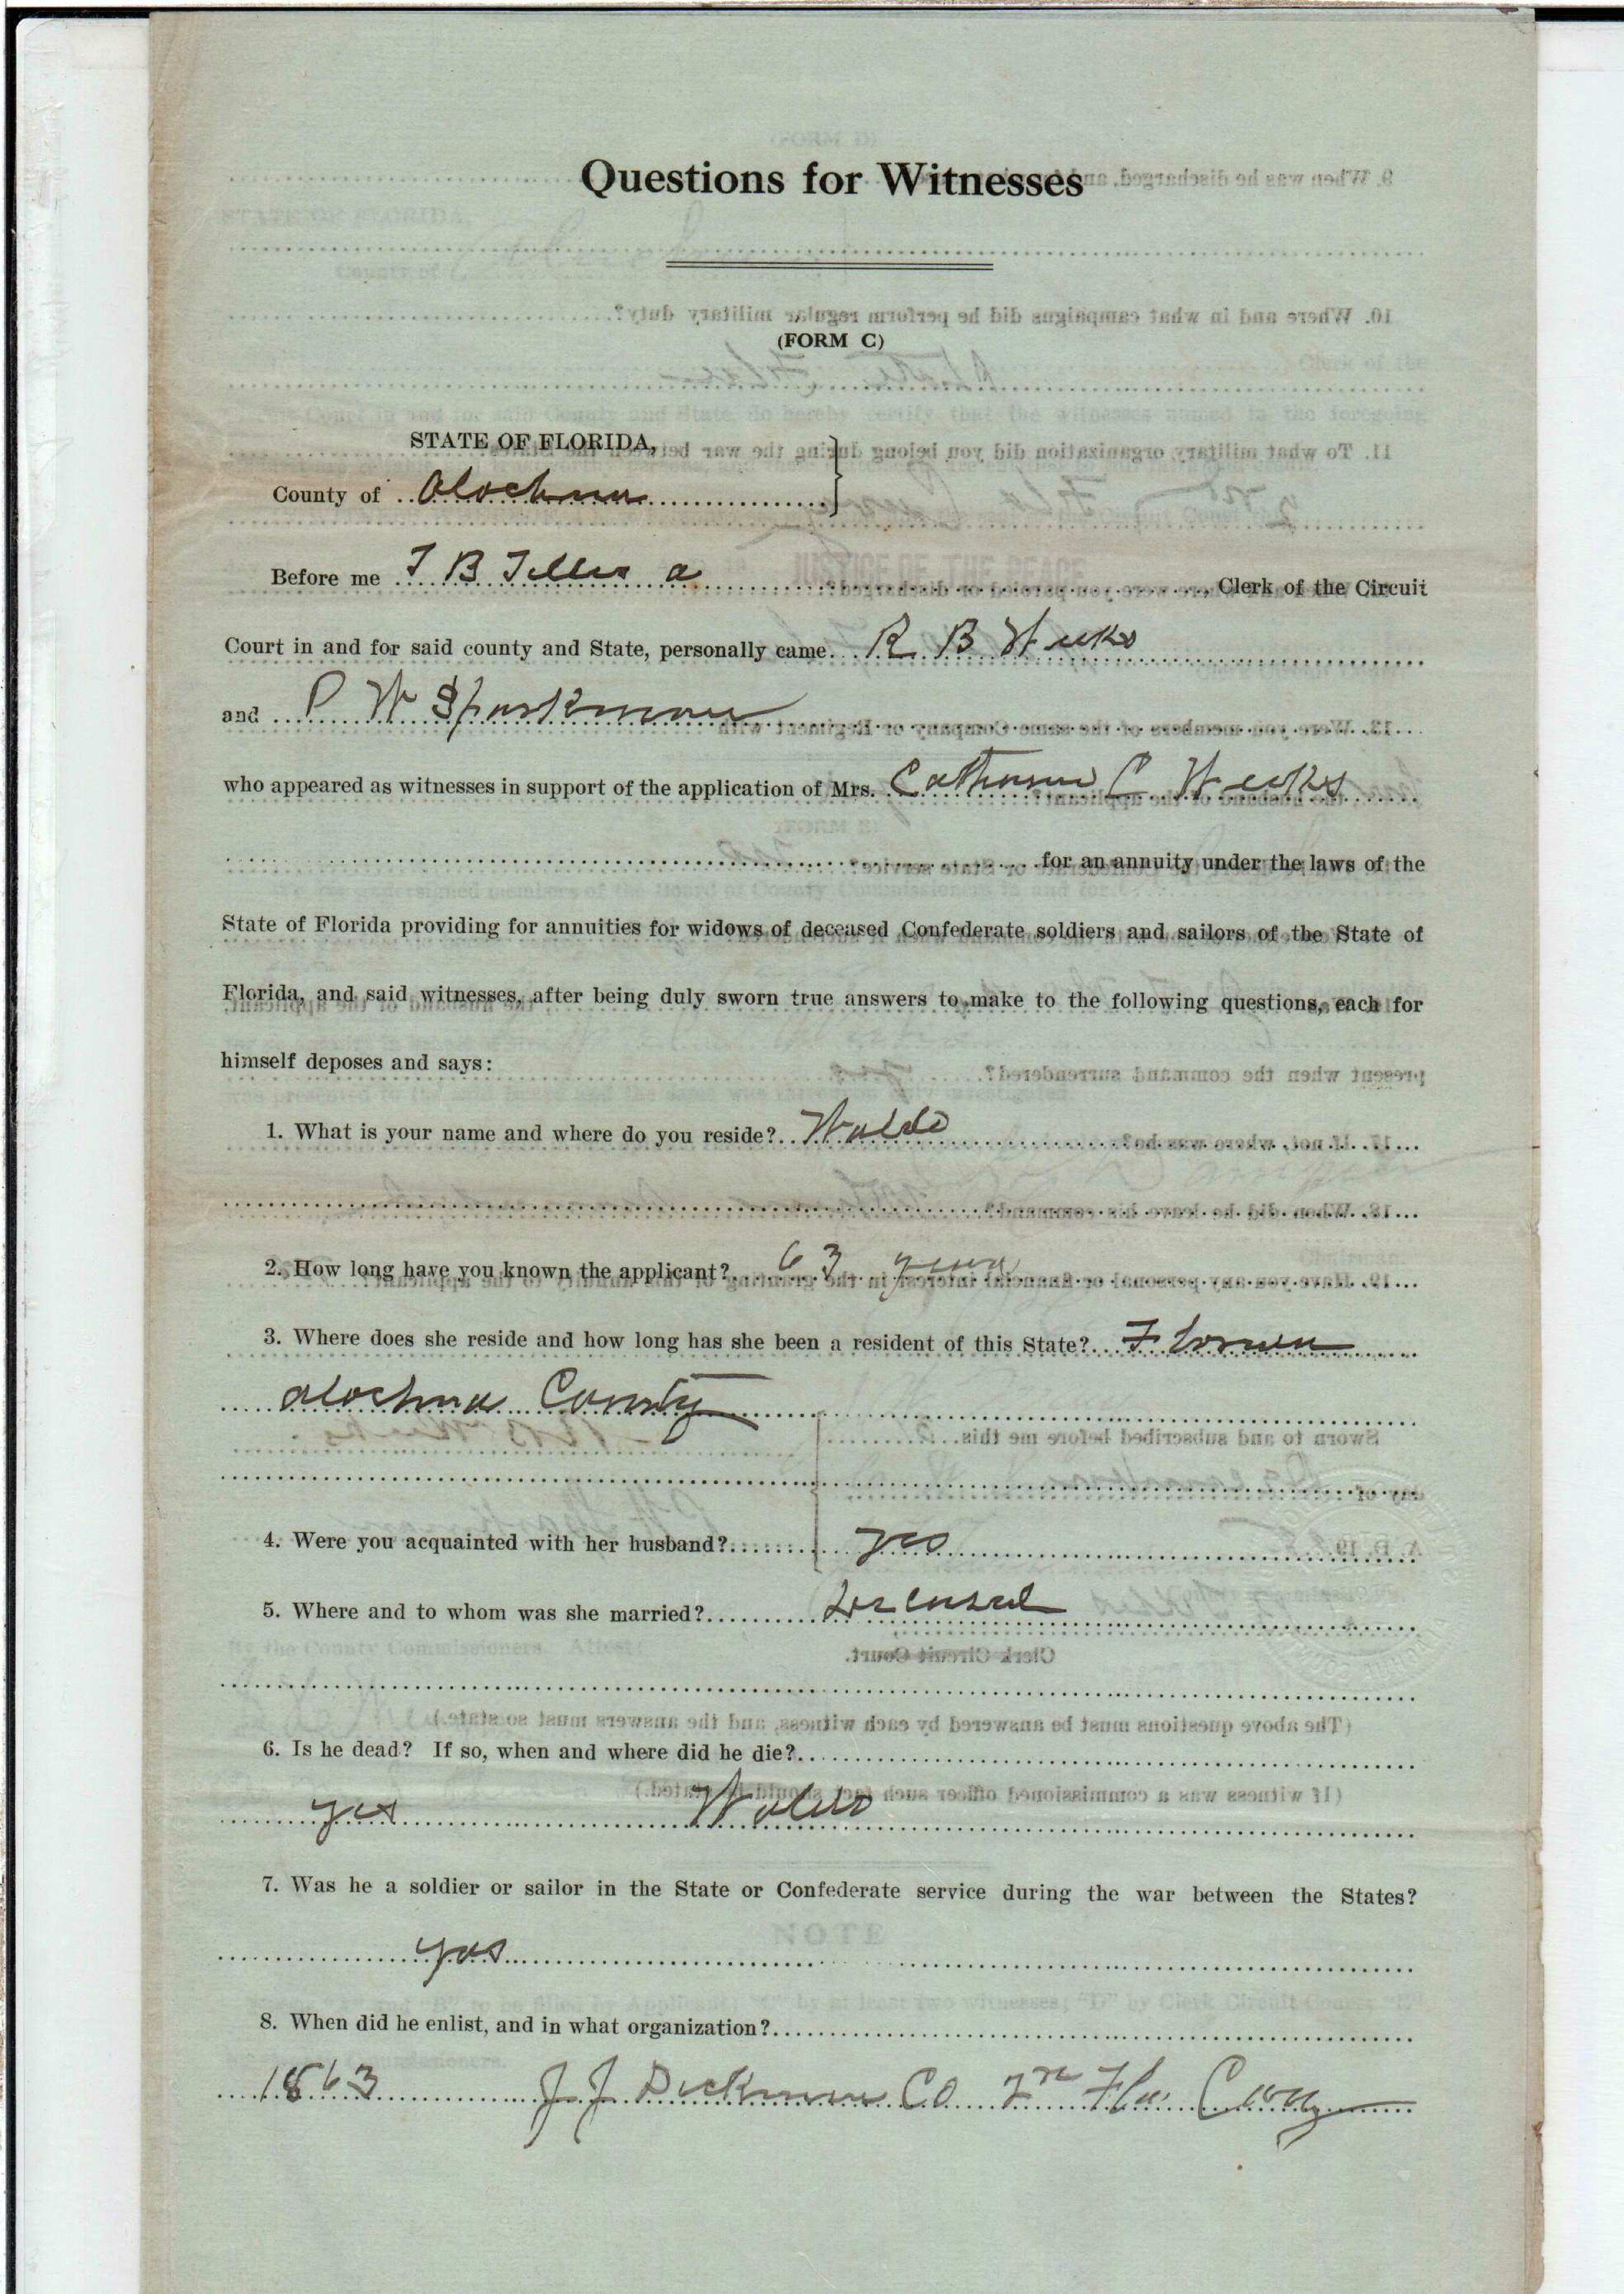 Questions for Witnesses
(FORM C)
STATE OF FLORIDA,
County of Alachua
Before me T B JUSTICE OF THE PEACE, Clerk of the Circuit
Court in and for said county and State, personally came R B Weeks
and P W Sparkman
who appeared as witnesses in support of the application of Mrs. Catherine C Weeks
for an annuity under the laws of the
State of Florida providing for annuities for widows of deceased Confederate soldiers and sailors of the State of
Florida, and said witnesses, after being duly sworn true answers to make to the following questions, each for
himself deposes and says:
1. What is your name and where do you reside? Waldo
2. How long have you known the applicant? 63 years
3. Where does she reside and how long has she been a resident of this State? Florida
Alachua County
4. Were you acquainted with her husband? yes
5. Where and to whom was she married?
6. Is he dead? If so, when and where did he die?
yes Waldo
7. Was he a soldier or sailor in the State or Confederate service during the war between the States?
yes
8. When did he enlist, and in what organization?
1863 J. J. Dickman Co 2nd Fla Cavy